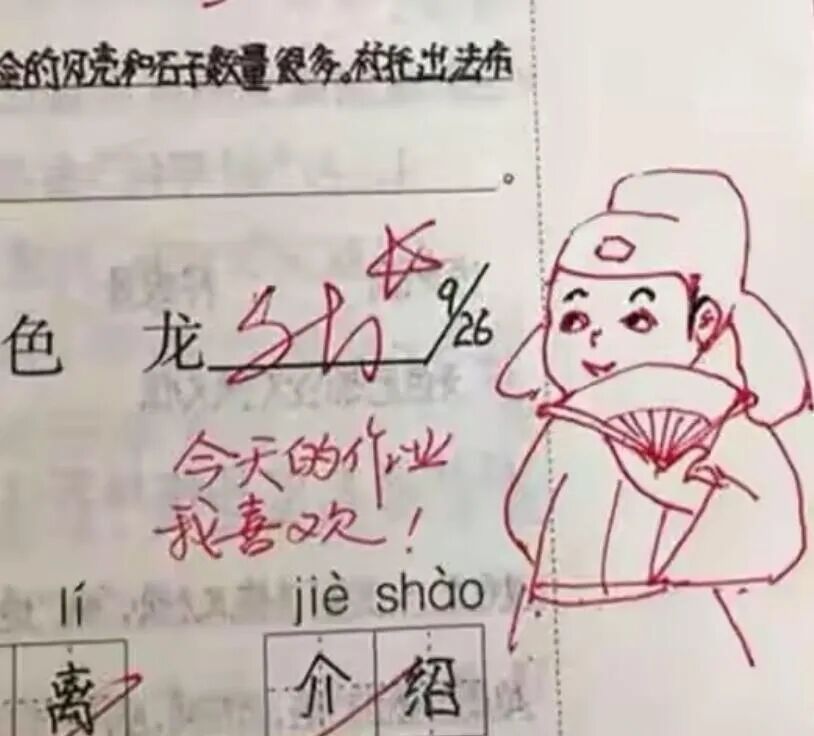 的贝壳和石子数量很多。村托出法布
。
色 龙 9/26
今天的作业
我喜欢！
lí jiè shào
离 介绍